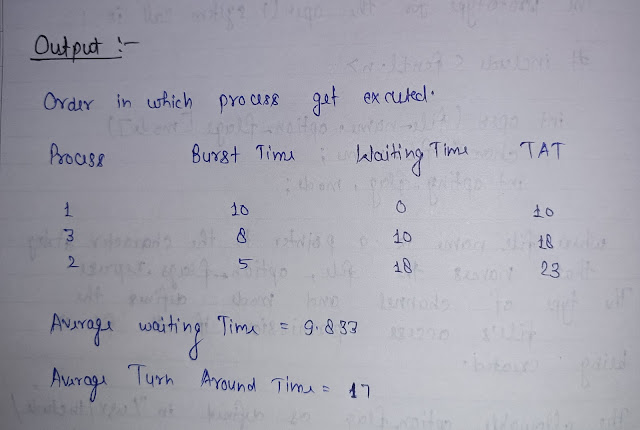 Output :-
Order in which process get executed.
Process Burst Time Waiting Time TAT
1 10 0 10
3 8 10 18
2 5 18 23
Average waiting Time = 9.833
Average Turn Around Time = 17